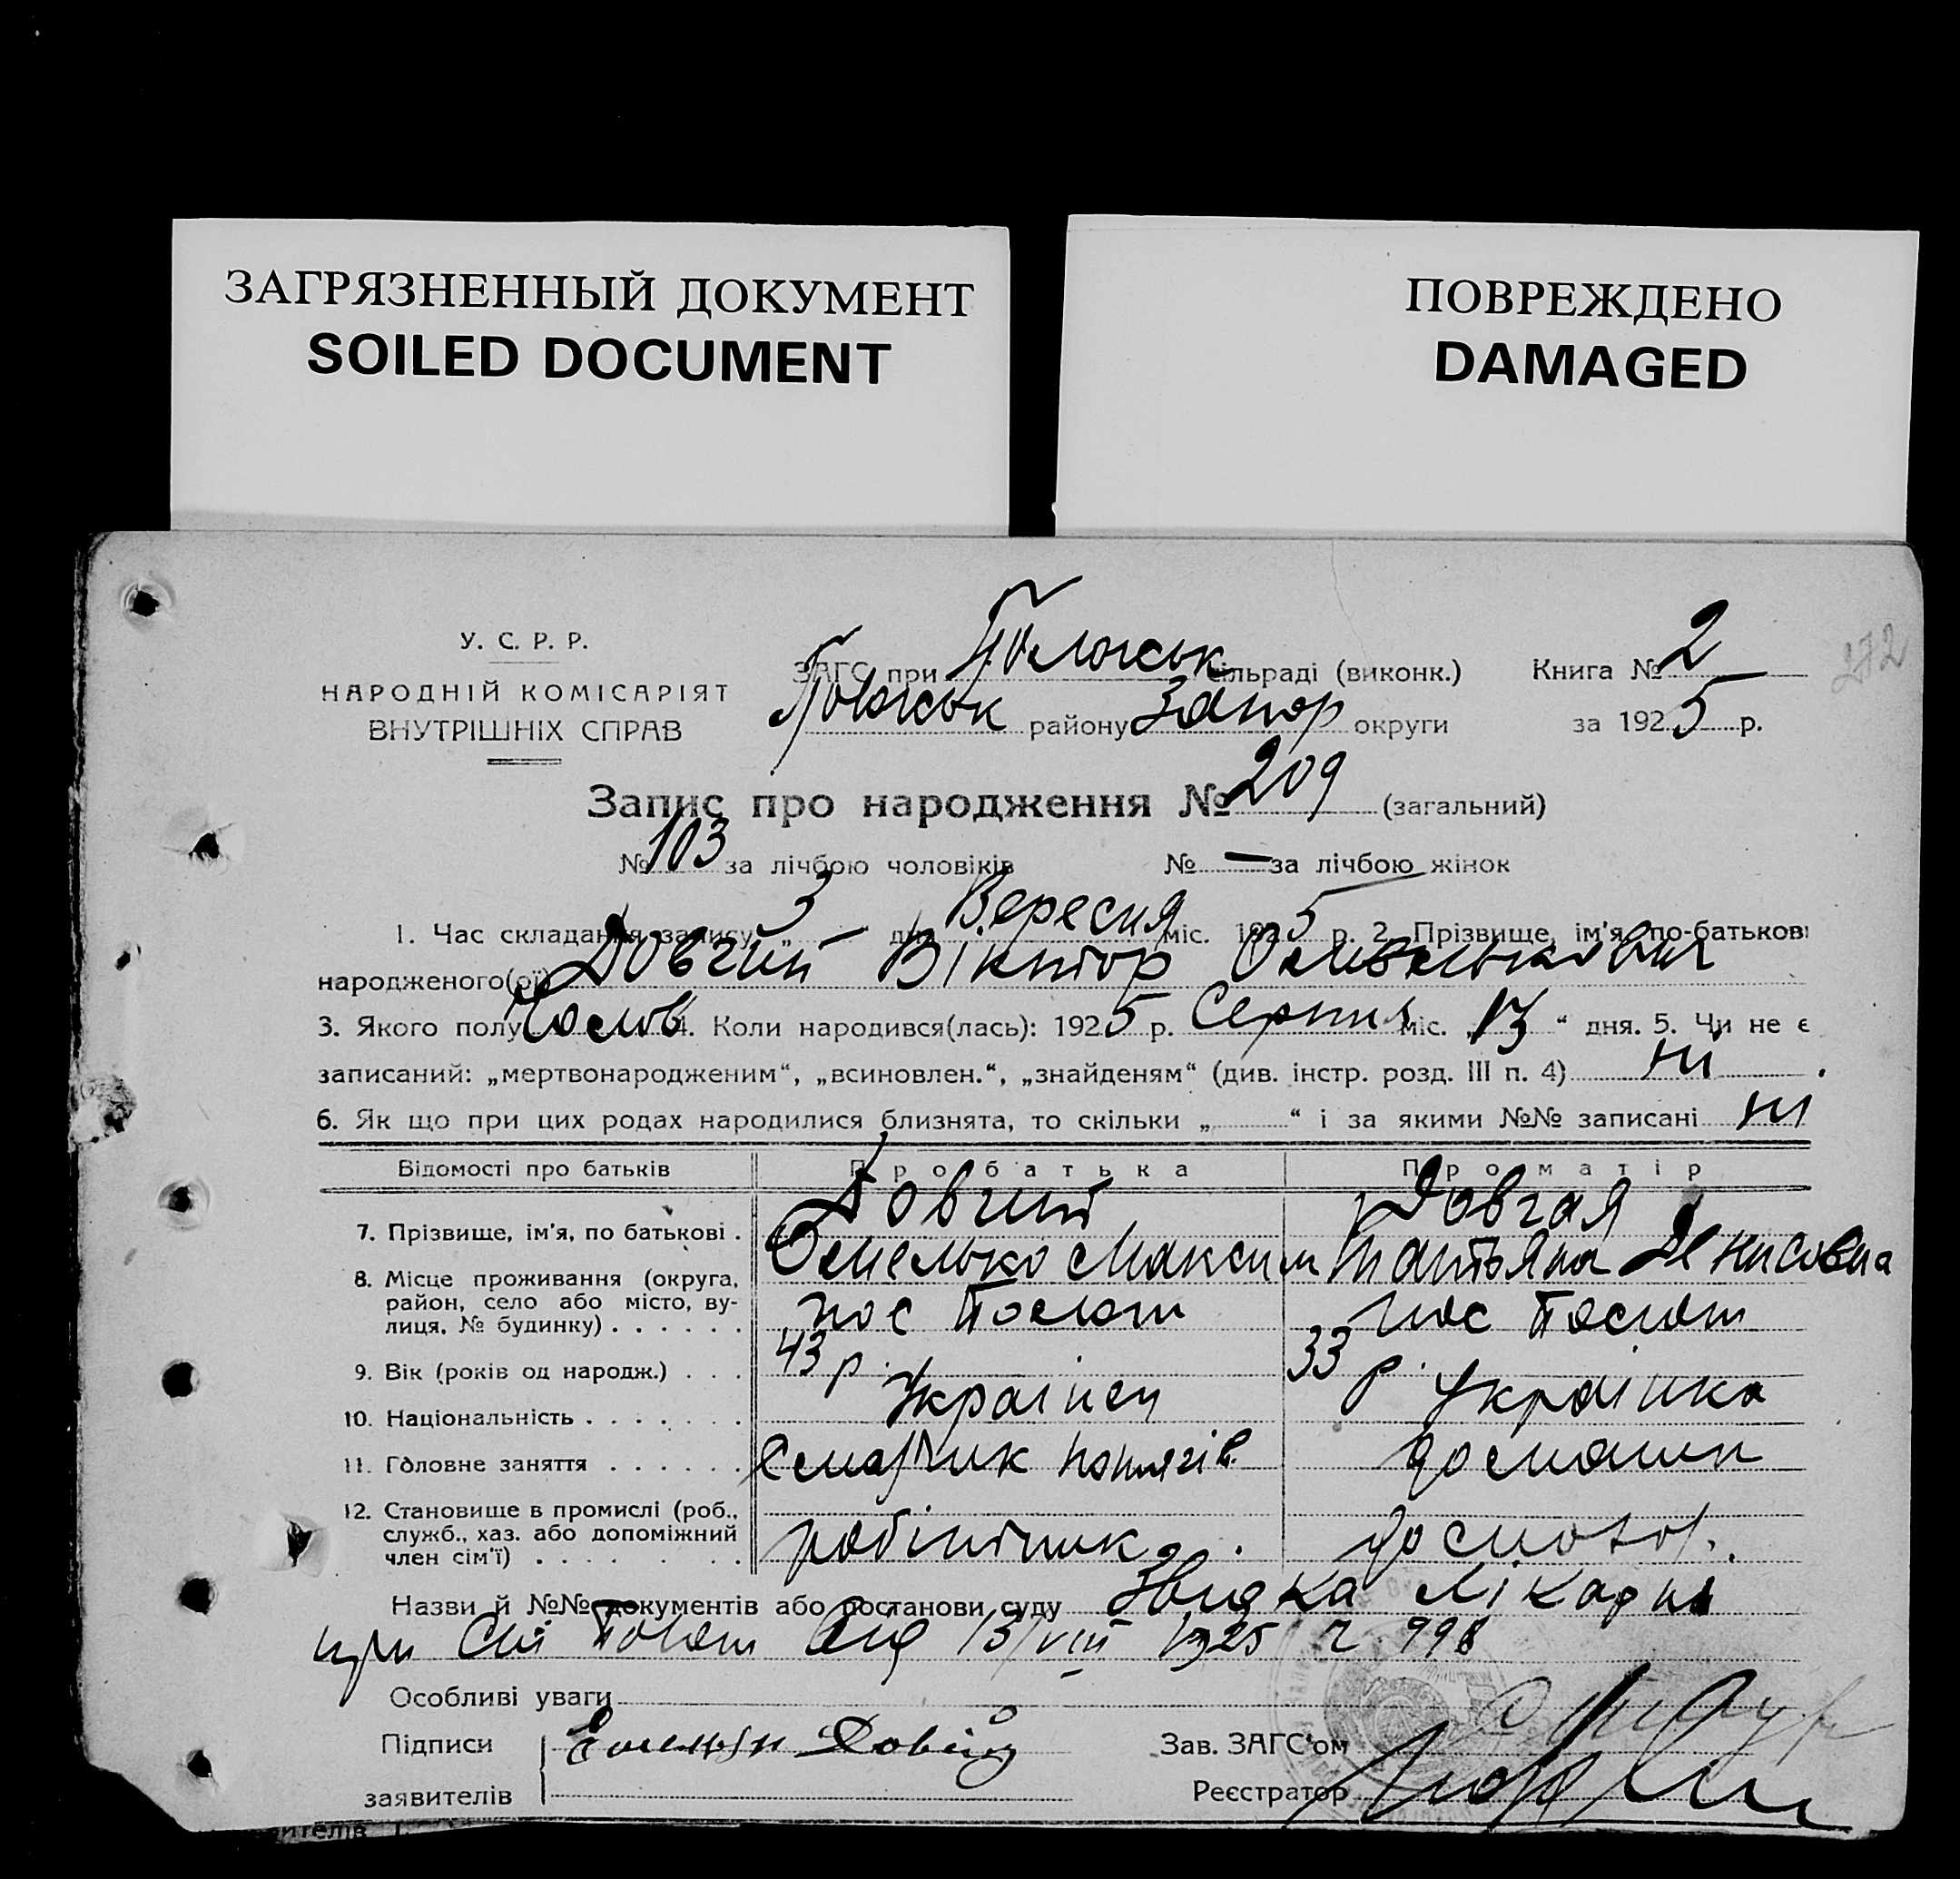 ЗАГРЯЗНЕННЫЙ ДОКУМЕНТ
SOILED DOCUMENT
ПОВРЕЖДЕНО
DAMAGED
272
У. С. Р. Р.
НАРОДНІЙ КОМІСАРІЯТ
ВНУТРІШНІХ СПРАВ
ЗАГС при Положськ сільраді (виконк.) Книга № 2
Положськ району Запор округи за 1925 р.
Запис про народження № 209 (загальний)
№ 103 за лічбою чоловіків № — за лічбою жінок
1. Час складання запису „ 3 “ дня Вересня міс. 1925 р. 2. Прізвище, ім'я, по-батькові
народженого(ої) Довгий Віктор Омелькович
3. Якого полу Чолов 4. Коли народився(лась): 1925 р. Серпня міс. „ 13 “ дня. 5. Чи не є
записаний: „мертвонародженим“, „всиновлен.“, „знайденям“ (див. інстр. розд. III п. 4) ні .
6. Як що при цих родах народилися близнята, то скільки „ “ і за якими №№ записані ні
Відомості про батьків Про батька Про матір
7. Прізвище, ім'я, по батькові . Довгий Омелько Максим Довгая Татьяна Денисовна
8. Місце проживання (округа, район, село або місто, вулиця, № будинку) . . . . . . пос Полог пос Полог
9. Вік (років од народж.) . . . 43 р. 33 р.
10. Національність . . . . . . . Українец Українка
11. Головне заняття . . . . . . Смазчик потягів. домашн
12. Становище в промислі (роб., служб., хаз. або допоміжний член сім'ї) . . . . . . . . робітник домогосп.
Назви й №№ документів або постанови суду Звидка Лікарні
при Ст Полог від 13/VIII 1925 г 998
Особливі уваги
Підписи Емельян Довгий Зав. ЗАГС'ом
заявителів Реєстратор